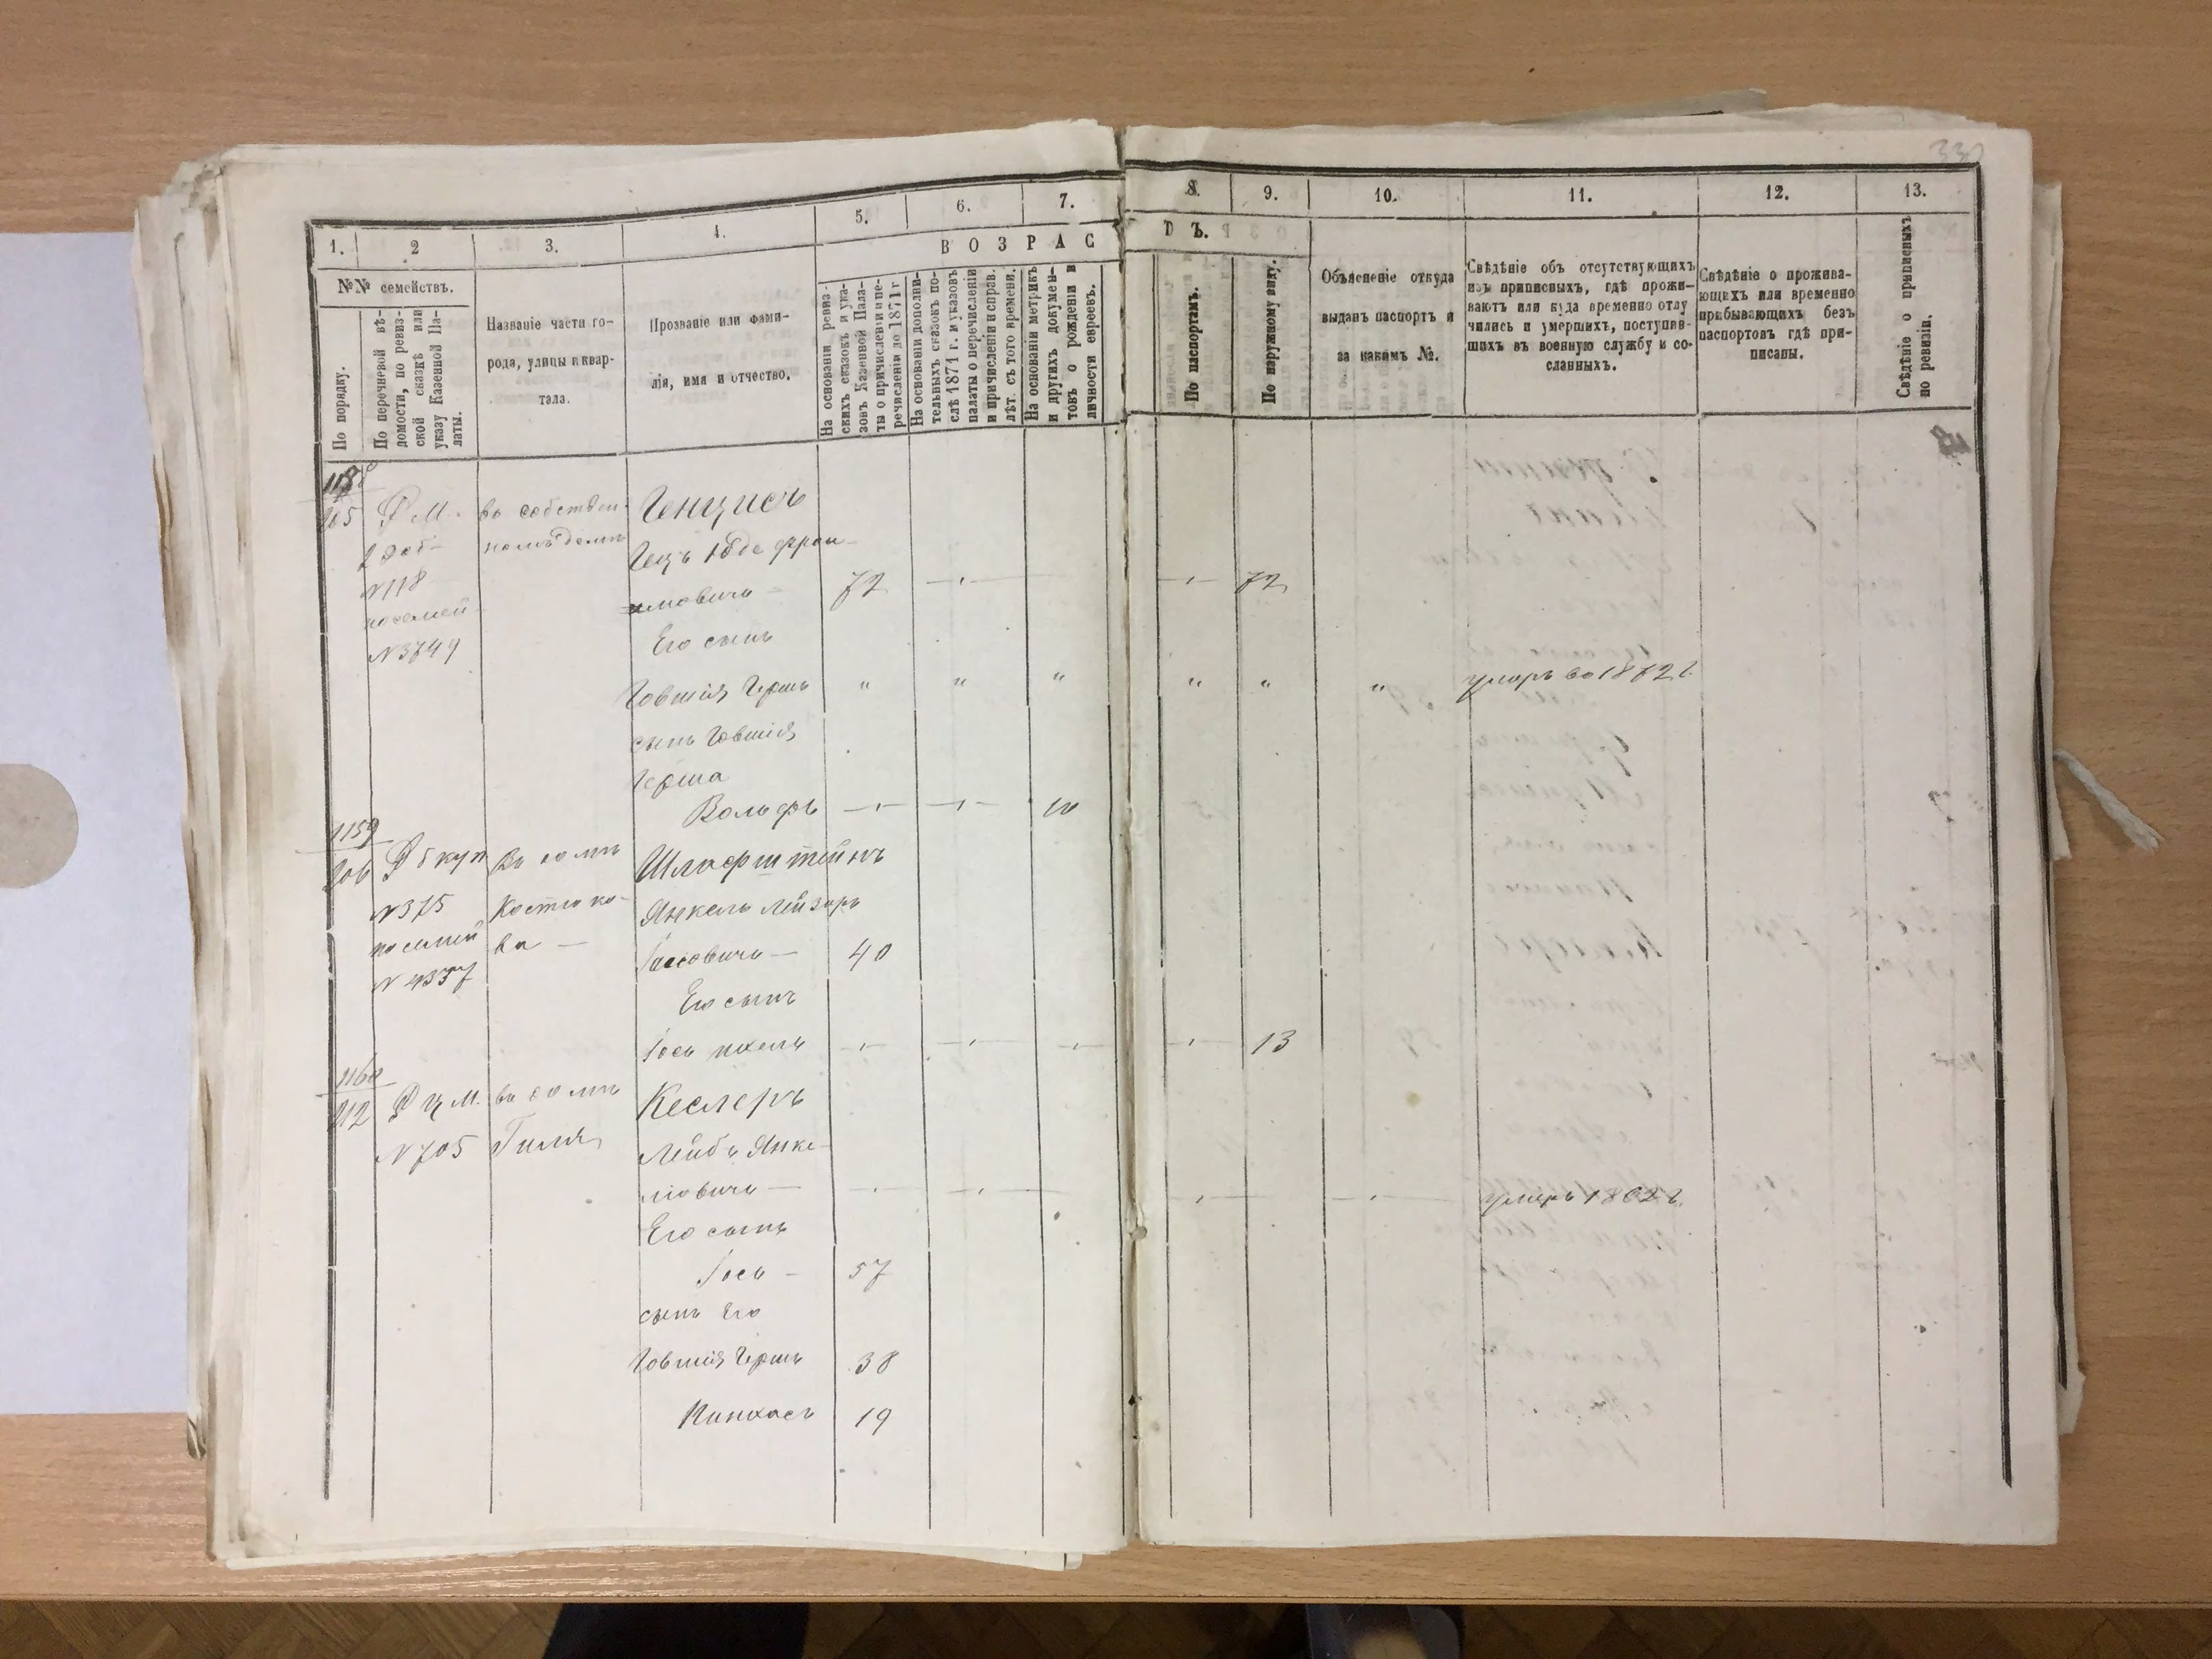 330
1.
2
3.
4.
5.
6.
7.
8.
9.
10.
11.
12.
13.
ВОЗРАС
ТЪ.
№№ семействъ.
По порядку.
По перечневой вѣ-
домости, по ревиз-
ской сказкѣ или
указу Казенной Па-
латы.
Названіе части го-
рода, улицы и квар-
тала.
Прозваніе или фами-
лія, имя и отчество.
На основаніи ревиз-
скихъ сказокъ и ука-
зовъ Казенной Пала-
ты о причисленіи и пе-
речисленіи до 1871 г
На основаніи дополни-
тельныхъ сказокъ по-
слѣ 1871 г. и указовъ
палаты о перечисленіи
и причисленіи и справ.
лѣт. съ того времени.
На основаніи метрикъ
и другихъ докумен-
товъ о рожденіи и
личности евреевъ.
По паспортамъ.
По наружному виду.
Объясненіе откуда
выданъ паспортъ и
за какимъ №.
Свѣдѣніе объ отсутствующихъ
изъ приписныхъ, гдѣ прожи-
ваютъ или куда временно отлу
чились и умершихъ, поступив-
шихъ въ военную службу и со-
сланныхъ.
Свѣдѣніе о прожива-
ющихъ или временно
прибывающихъ безъ
паспортовъ гдѣ при-
писаны.
Свѣдѣніе о приписныхъ
по ревизіи.
въ собствен-
номъ домѣ
№118
посемей
№3749
Генцисъ
мовичъ — 72 72
Его сынъ
Говшія Гершъ " " " " " " умеръ въ 1872 г.
сынъ Говшія
Герша
Вольфъ 10
1159
206 купъ Въ домѣ Шлафштейнъ
№375 Костюко- Янкель Лейзеръ
посемей ва —
№4337 Іосовичъ — 40
Его сынъ
Іось 13
1160
212 М. въ домѣ Кеслеръ
№705 Гиля Лейбъ Янке-
ліовичъ — умеръ 1862 г.
Его сынъ
Іось — 57
сынъ Его
Говшія Гершъ 38
Пинхасъ 19